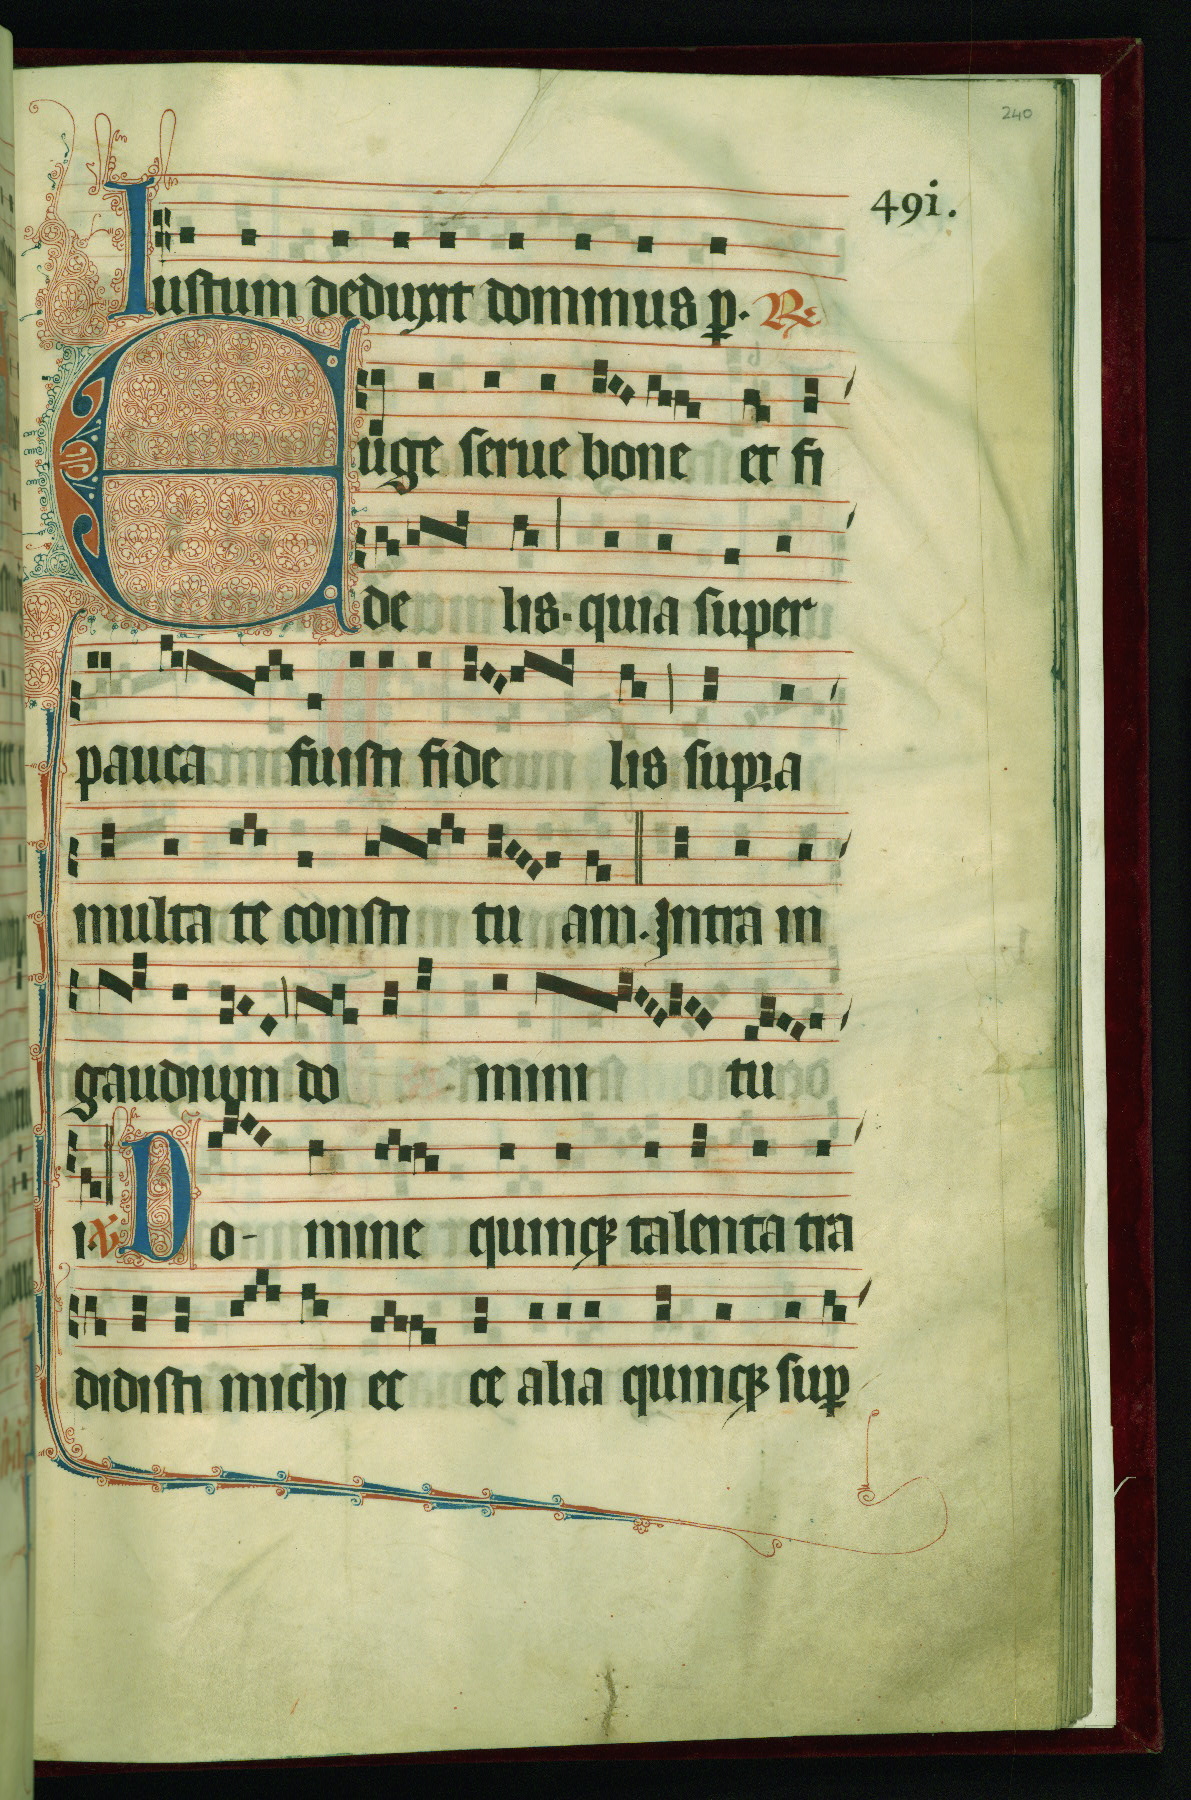 240
491.
Iustum deduxit dominus p. R.
Euge serue bone et fi
de lis. quia super
pauca fuisti fide lis supra
multa te consti tu am. Intra in
gaudium do mini tu
i. V Do- mine quinqꝫ talenta tra
didisti michi ec ce alia quinqꝫ suꝑ